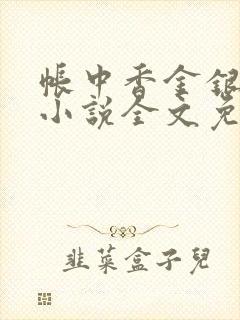 帳中香金銀
小說全文免
韭菜盒子兒